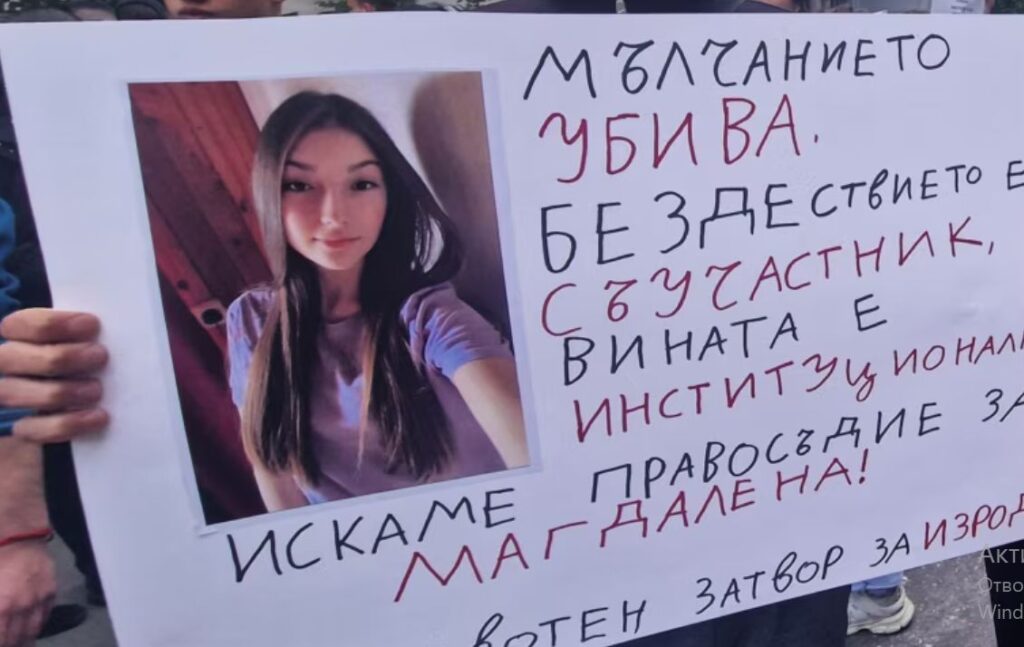 МЪЛЧАНИЕТО
УБИВА.
БЕЗДЕСТВИЕТО Е
СЪУЧАСТНИК,
ВИНАТА Е
ИНСТИТУЦИОНАЛН
ИСКАМЕ ПРАВОСЪДИЕ ЗА
МАГДАЛЕНА!
ЗАТВОР ЗА